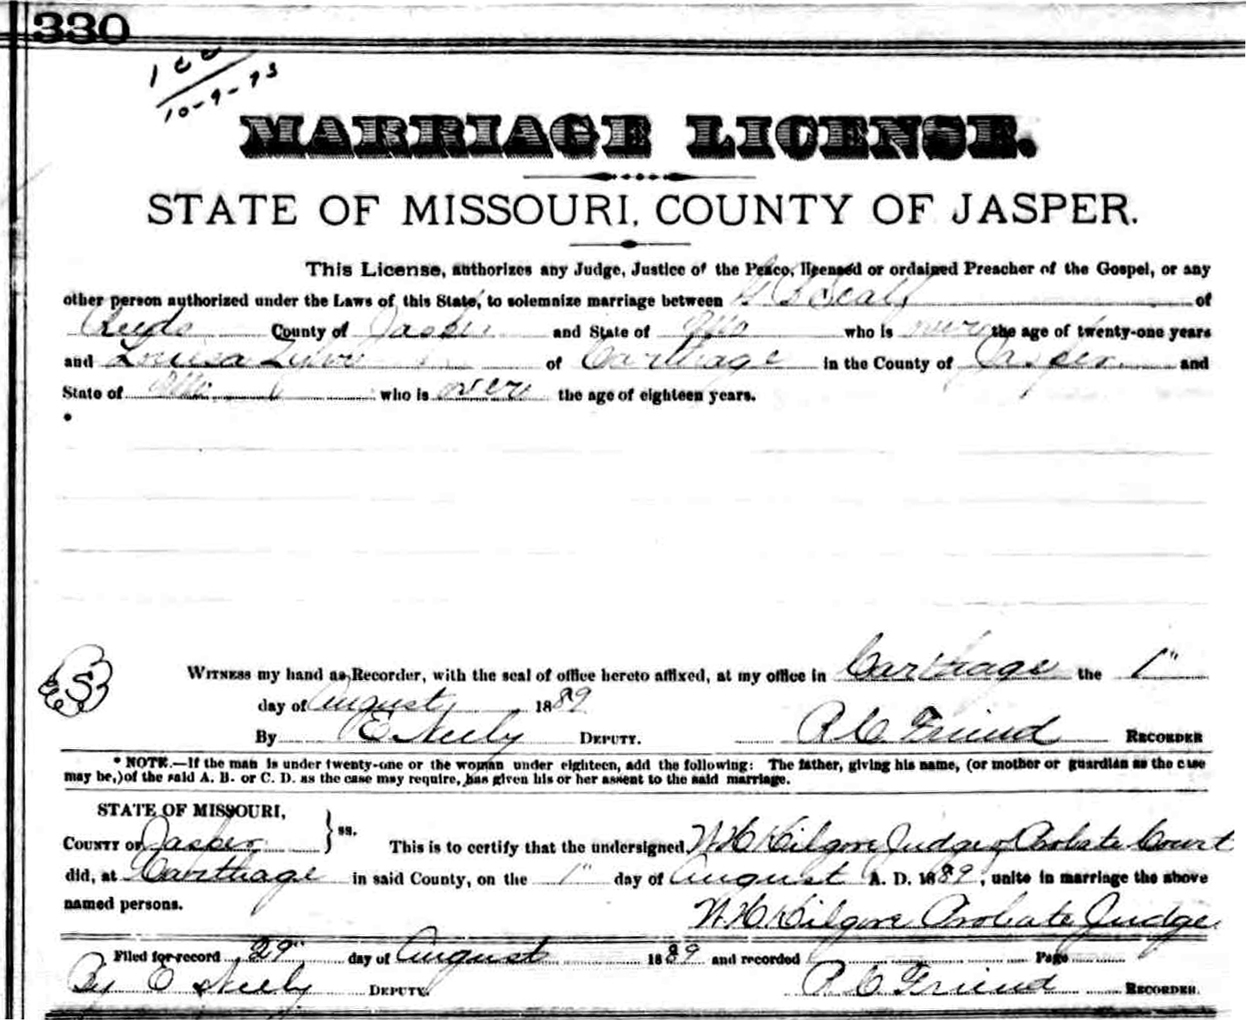 330
100
10-9-73
MARRIAGE LICENSE.
STATE OF MISSOURI, COUNTY OF JASPER.
This License, authorizes any Judge, Justice of the Peace, licensed or ordained Preacher of the Gospel, or any
other person authorized under the Laws of this State, to solemnize marriage between Scalf of
Reeds County of Jasper and State of Mo who is over the age of twenty-one years
and Louisa of Carthage in the County of Jasper and
State of Mo who is over the age of eighteen years.
*
WITNESS my hand as Recorder, with the seal of office hereto affixed, at my office in Carthage the 1"
day of August 1889
By E Neely DEPUTY. R C Friend RECORDER
* NOTE.—If the man is under twenty-one or the woman under eighteen, add the following: The father, giving his name, (or mother or guardian as the case
may be,) of the said A. B. or C. D. as the case may require, has given his or her assent to the said marriage.
STATE OF MISSOURI,
COUNTY OF Jasper } ss. This is to certify that the undersigned, W H Kilgore Judge of Probate Court
did, at Carthage in said County, on the 1" day of August A. D. 1889, unite in marriage the above
named persons.
W H Kilgore Probate Judge
Filed for record 29" day of August 1889 and recorded Page
By E Neely DEPUTY. R C Friend RECORDER.